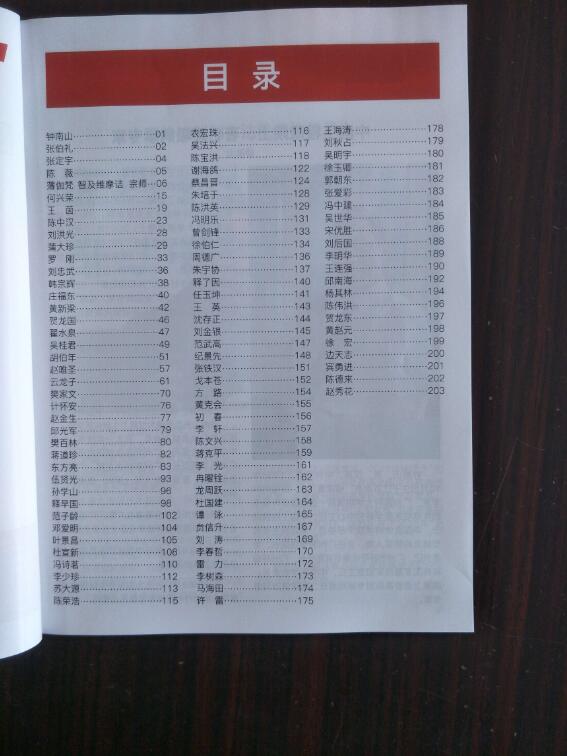 目 录
钟南山 01
张伯礼 02
张定宇 04
陈 薇 05
薄伽梵 智及维摩诘 宗师 06
何兴荣 15
王 茵 19
陈中汉 23
刘洪光 28
蒲大珍 29
罗 刚 33
刘忠武 36
韩宗辉 38
庄福东 40
黄新梁 42
贺龙国 46
翟水泉 47
吴桂君 49
胡伯年 51
赵唯圣 57
云龙子 61
樊家文 70
计怀安 76
赵金生 77
邱光军 79
樊百林 80
蒋道珍 82
东方亮 83
伍贤光 93
孙学山 96
释早国 98
范子龄 102
邓爱明 104
叶景昌 105
杜宣新 106
冯诗茗 110
李少珍 112
苏大源 113
陈荣浩 115
农宏珠 116
吴法兴 117
陈宝洪 118
谢海鸽 122
蔡昌晋 124
朱培于 128
陈洪英 129
冯明乐 131
曾剑锋 133
徐伯仁 134
周德广 136
朱宇协 137
释了因 140
任玉坤 141
王 英 143
沈存正 144
刘金银 145
范武高 147
纪景先 148
张铁汉 151
戈本苍 152
方 路 154
黄克会 155
初 春 156
李 轩 157
陈文兴 158
蒋克平 159
李 光 161
冉曜铨 162
龙周跃 163
杜国建 164
谭 泳 165
贠信升 167
刘 涛 169
李春哲 170
雷 力 172
李树森 173
马海田 174
许 雷 175
王海涛 178
刘秋占 179
吴明宇 180
徐玉卿 181
郭朝东 182
张爱彩 183
冯中建 184
吴世华 185
宋优胜 186
刘后国 188
李明华 189
王连强 190
邱南海 192
杨其林 194
陈伟洪 196
贺龙东 197
黄赵元 198
徐 宏 199
边天志 200
宾勇进 201
陈德来 202
赵秀花 203